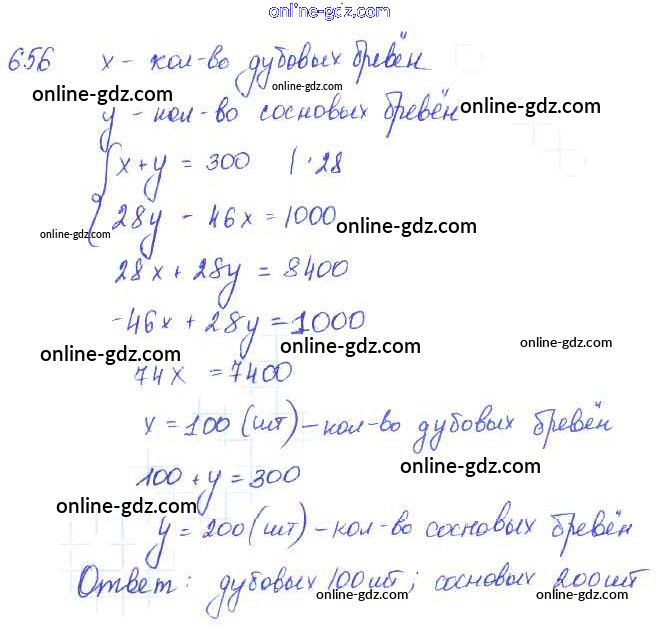 online-gdz.com
656 x - кол-во дубовых бревён
online-gdz.com online-gdz.com online-gdz.com
y - кол-во сосновых бревён
{ x + y = 300 | · 28
28y - 46x = 1000
online-gdz.com online-gdz.com
28x + 28y = 8400
-46x + 28y = 1000
online-gdz.com online-gdz.com online-gdz.com
74x = 7400
x = 100 (шт) - кол-во дубовых бревён
online-gdz.com
100 + y = 300
online-gdz.com
y = 200 (шт) - кол-во сосновых бревён
Ответ: дубовых 100 шт; сосновых 200 шт
online-gdz.com online-gdz.com